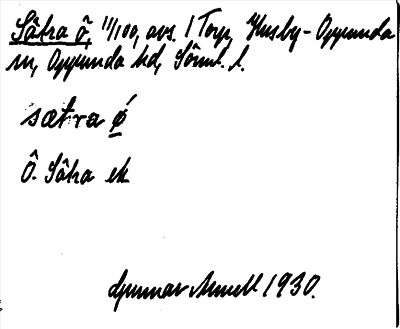 Sätra ö, 1/100, avs. 1 Torp, Husby-Oppunda
sn, Oppunda hd, Söml. l.
sætra ǿ
Ö. Sätra ek
Gunnar Arnell 1930.